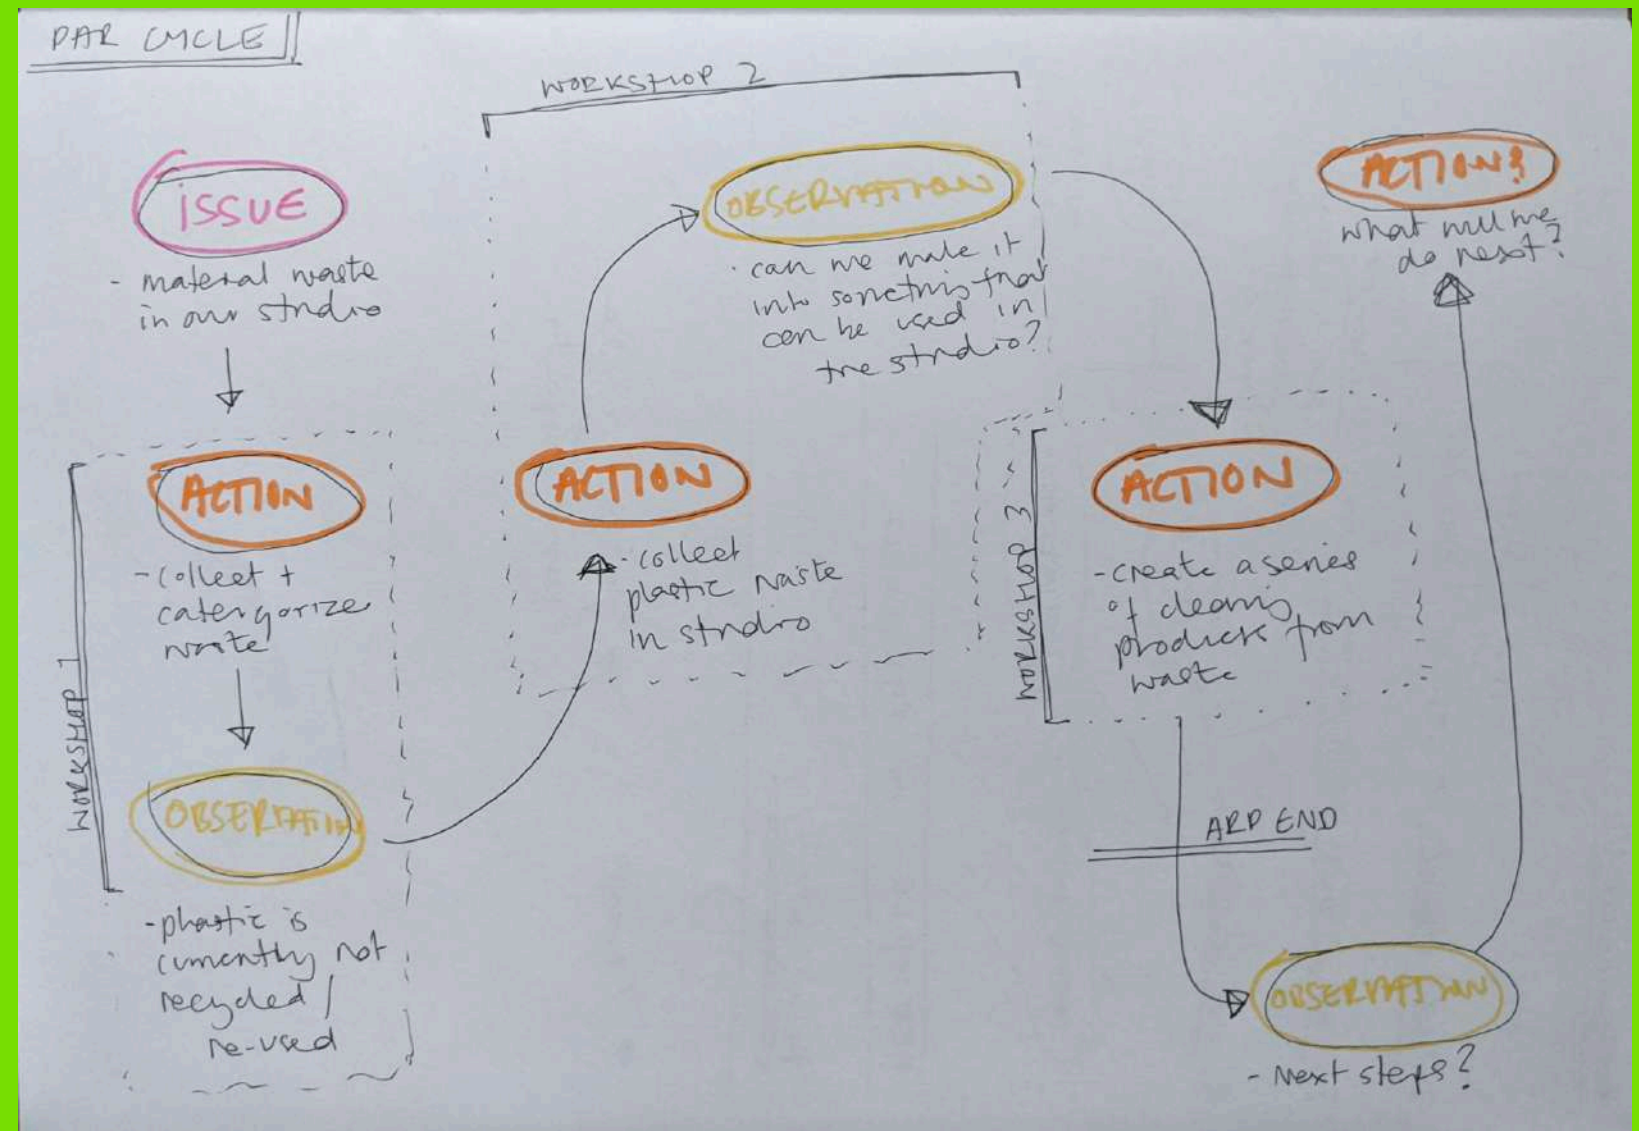 PAR CYCLE
ISSUE
- material waste
in our studio
WORKSHOP 1
ACTION
- collect +
catergorize
waste
OBSERVATION
- plastic is
currently not
recycled /
re-used
WORKSHOP 2
ACTION
- collect
plastic waste
in studio
OBSERVATION
· can we make it
into something that
can be used in
the studio?
WORKSHOP 3
ACTION
- create a series
of cleaning
products from
waste
ARP END
OBSERVATION
- Next steps?
ACTION?
what will we
do next?